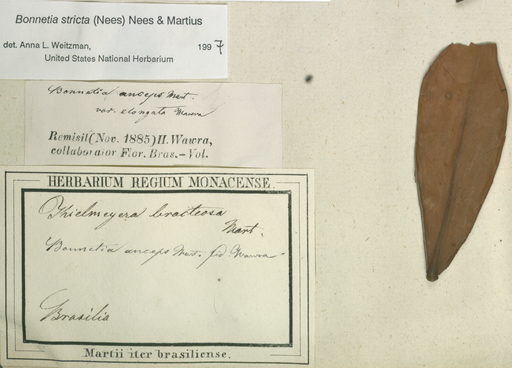 Bonnetia stricta (Nees) Nees & Martius
det. Anna L. Weitzman, 1997
United States National Herbarium
Bonnetia anceps Mart.
var. elongata Wawra
Remisit (Nov. 1885) H. Wawra,
collaborator Flor. Bras.-Vol.
HERBARIUM REGIUM MONACENSE.
Kielmeyera bracteosa
Mart.
Bonnetia anceps Mart. fid. Wawra
Brasilia
Martii iter brasiliense.